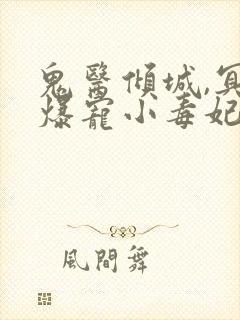 鬼醫傾城,冥
爆寵小毒妃
風間舞